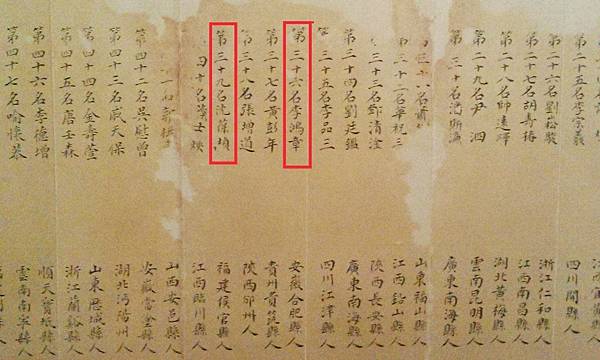 江西宜黃
第二十五名李宗羲 四川開縣人
第二十六名劉崧駿 浙江仁和縣人
第二十七名胡壽椿 江西南昌縣人
第二十八名帥遠燡 湖北黃梅縣人
第二十九名尹泗 雲南昆明縣人
第三十名潘斯濂 廣東南海縣人
三十一名蕭 山東福山縣人
三十二名華祝三 江西鉛山縣人
三十三名鄭清淦 陝西長安縣人
第三十四名劉廷鑑 廣東南海縣人
第三十五名李品三 四川江津縣人
第三十六名李鴻章 安徽合肥縣人
第三十七名黃彭年 貴州貴筑縣人
第三十八名張增道 陝西邠州人
第三十九名沈葆楨 福建侯官縣人
四十名黃士 江西臨川縣人
山西安邑縣人
第四十二名吳慰曾 安徽當塗縣人
第四十三名戚天保 湖北沔陽州人
第四十四名金壽萱 山東歷城縣人
第四十五名唐壬森 浙江蘭谿縣人
第四十六名李德增 順天寶坻縣人
第四十七名喻懷恭 雲南南寧縣人